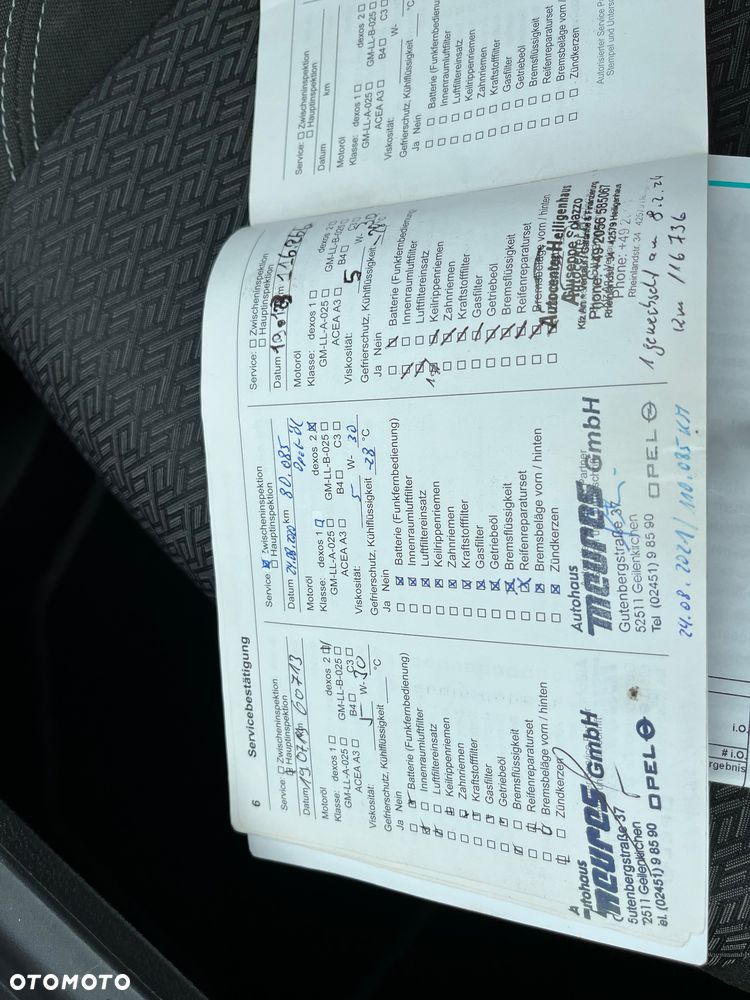 6
Servicebestätigung
Service: □ Zwischeninspektion
Hauptinspektion
Datum 19.07.19 km 60713
Motoröl
Klasse: dexos 1 □ dexos 2
GM-LL-A-025 □ GM-LL-B-025 □
ACEA A3 □ B4 □ C3 □
Viskosität: 5 W- 30
Gefrierschutz, Kühlflüssigkeit °C
Ja Nein
Batterie (Funkfernbedienung)
Innenraumluftfilter
Luftfiltereinsatz
Keilrippenriemen
Zahnriemen
Kraftstofffilter
Gasfilter
Getriebeöl
Bremsflüssigkeit
Reifenreparaturset
Bremsbeläge vorn / hinten
Zündkerzen
Autohaus
meures GmbH
Gutenbergstraße 37
52511 Geilenkirchen
Tel. (02451) 9 85 90 OPEL
Service: ☒ Zwischeninspektion
□ Hauptinspektion
Datum 21.08.2020 km 80.085
Motoröl Opel-Öl
Klasse: dexos 1 □ dexos 2 ☒
GM-LL-A-025 □ GM-LL-B-025 □
ACEA A3 □ B4 □ C3 □
Viskosität: 5 W- 30
Gefrierschutz, Kühlflüssigkeit -28 °C
Ja Nein
□ ☒ Batterie (Funkfernbedienung)
□ ☒ Innenraumluftfilter
□ ☒ Luftfiltereinsatz
□ ☒ Keilrippenriemen
□ ☒ Zahnriemen
□ ☒ Kraftstofffilter
□ ☒ Gasfilter
□ ☒ Getriebeöl
□ ☒ Bremsflüssigkeit
□ ☒ Reifenreparaturset
□ ☒ Bremsbeläge vorn / hinten
□ ☒ Zündkerzen
Autohaus
meures GmbH
Gutenbergstraße 37
52511 Geilenkirchen
Tel (02451) 9 85 90 OPEL
24.08.2021 / 110.035 KM
Service: □ Zwischeninspektion
□ Hauptinspektion
Datum km
Motoröl
Klasse: dexos 1 □ dexos 2 □
GM-LL-A-025 □ GM-LL-B-025 □
ACEA A3 □ B4 □ C3 □
Viskosität: 5 W- 30
Gefrierschutz, Kühlflüssigkeit °C
Ja Nein
Batterie (Funkfernbedienung)
Innenraumluftfilter
Luftfiltereinsatz
Keilrippenriemen
Zahnriemen
Kraftstofffilter
Gasfilter
Getriebeöl
Bremsflüssigkeit
Reifenreparaturset
Bremsbeläge vorn / hinten
Autocenter Heiligenhaus
Giuseppe Falazzo
Phone: +49 2056 585067
Phone: +49
Rheinlandstr. 34
am 8.2.24
km 116736
Service: □ Zwischeninspektion
□ Hauptinspektion
Datum km
Motoröl
Klasse: dexos 1 □ dexos 2 □
GM-LL-A-025 □ GM-LL-B-025 □
ACEA A3 □ B4 □ C3 □
Viskosität: W-
Gefrierschutz, Kühlflüssigkeit °C
Ja Nein
□ □ Batterie (Funkfernbedienung
□ □ Innenraumluftfilter
□ □ Luftfiltereinsatz
□ □ Keilrippenriemen
□ □ Zahnriemen
□ □ Kraftstofffilter
□ □ Gasfilter
□ □ Getriebeöl
□ □ Bremsflüssigkeit
□ □ Reifenreparaturset
□ □ Bremsbeläge vorn
□ □ Zündkerzen
Autorisierter Service
Stempel und
i.O.
# i.O.
rgebnis
OTOMOTO